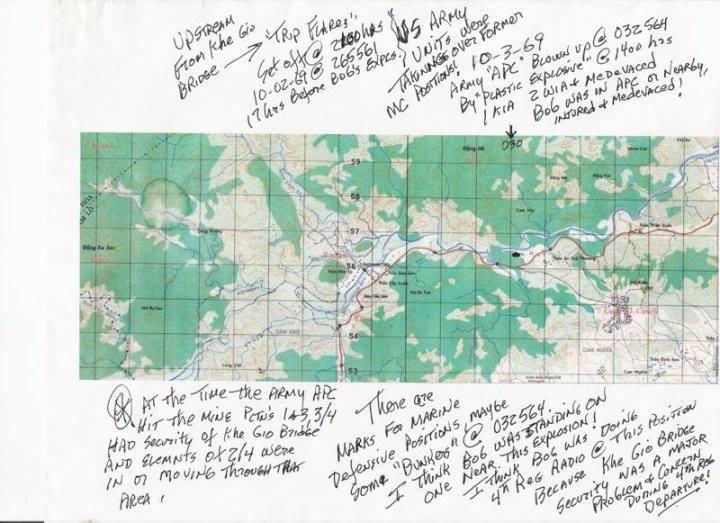 UPSTREAM
From Khe Gio
BRIDGE →
"TRIP FLARES",
Set off @ 2130 hrs
10-02-69 @ 265561
17 hrs Before Bob's Explos.
US ARMY
UNITS WERE
TAKINGS OVER FORMER
MC POSITIONS!
10-3-69
ARMY "APC" BLOWN UP @ 032564
By "PLASTIC EXPLOSIVE" @ 1400 hrs
1 KIA 2 WIA & MEDEVACED
BOB WAS IN APC OR NEARBY,
INJURED & MEDEVACED!
030
59
58
57
56
54
53
Động Hà
Cam Hyu
Động Ke Soc
Núi Ba Tum
CAM NGHĨA
AT the TIME the ARMY APC
HIT the MINE PLTN'S 1&3, 3/4
HAD SECURITY OF Khe Gio BRIDGE
AND ELEMNTS OF 2/4 WERE
IN OR MOVING THROUGH THAT
AREA!
There are
MARKS FOR MARINE
Defensive POSITIONS, MAYBE
SOME "BUNKERS" @ 032564.
I think BOB WAS STANDING ON
ONE NEAR THIS EXPLOSION!
I think BOB WAS DOING
4th REG RADIO @ THIS POSITION
BECAUSE Khe Gio BRIDGE
SECURITY WAS A MAJOR
PROBLEM & CONCERN
DURING 4th REG
DEPARTURE!